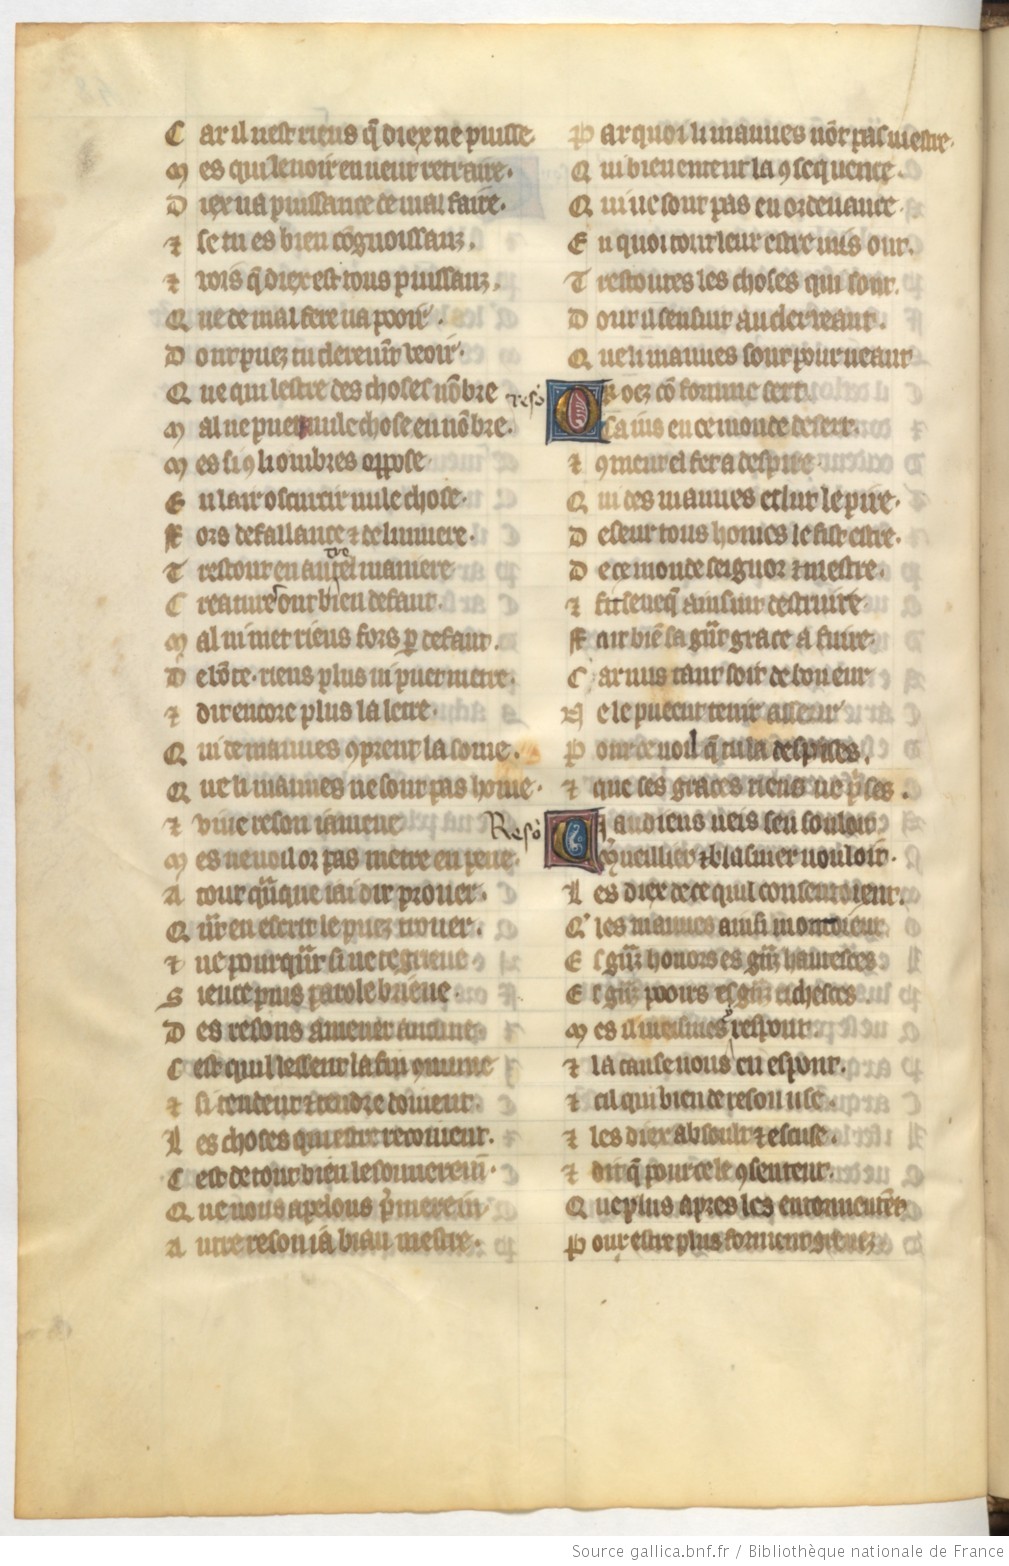 C ar il nest riens q̃ diex ne puisse
M es qui le uoir en ueut retraire.
D iex na puissance de mal faire.
⁊ se tu es bien cõgnoissanz.
⁊ vois q̃ diex est tous puissanz.
Q ue de mal fere na pooir.
D ont puez tu clerem̃t veoir.
Q ue qui lestre des choses nõbre
M al ne puet nule chose en nõbre.
M es si ꝯ li ombres oppose
E n lair oscurcir nule chose.
F ors defallance ⁊ de lumiere.
T restout en autel maniere
C reature ou bien defaut.
M al ni met riens fors ꝑ defaut.
D e bõte. riens plus ni puet metre.
⁊ dit encore plus la letre.
Q ui de mauues ꝯprent la some.
Q ue li mauues ne sont pas home.
⁊ viue reson i ameine
M es ne uoil or pas metre en peine.
A tout q̃nque iai dit prouer.
Q ñt en escrit le puez trouer.
⁊ ne pourq̃nt si ne te grieue
S ience puis ꝑ parole brieue.
D es resons amener aucune
C est quil lessent la fin ꝯmune
⁊ ci tendent ⁊ tendre doiuent.
L es choses qui estre recoiuent.
C est de tout bien le souuerein.
Q ue nous apelons p̃merein
A utre reson i a biau mestre.
P ar quoi li mauues nõt pas uiestre.
Q ui bien entent la ꝯsequence.
Q ui ne sont pas en ordenance
E n quoi tout leur estre mis ont.
T restoutes les choses qui sont.
D ont il sensiut au cler ueant.
Q ue li mauues sont pour neant
resõ
O r oez cõ fortune sert
Ca ius en ce monde desert.
⁊ ꝯment el fet a despire
Q ui des mauues eslut le pire.
D e seur tous homes le fist estre.
D e ce monde seignor ⁊ mestre.
⁊ fist seneq̃ ainsint destruire
F ait biẽ sa grãt grace a fuire.
C ar nus tant soit de bon eur
N e le puet tenir asseur
P our ce uoil q̃ tu la despises.
⁊ que ses graces riens ne p̃ses.
Resõ
C laudiens neis sen souloit
M erueillier ⁊ blasmer uouloit.
L es diex de ce quil consentoient.
Q̃ les mauues ainsi montoient
E s grãz honors es grãz hauteces
E s grãz pooirs es grãz richeces
M es il meismes i respont.
⁊ la cause nous en espont.
⁊ cil qui bien de reson use.
⁊ les diex absoult ⁊ escuse.
⁊ dit q̃ pour ce le ꝯsentent.
Q ue plus apres les entormentẽt
P our estre plus forment greuez
Source gallica.bnf.fr / Bibliothèque nationale de France